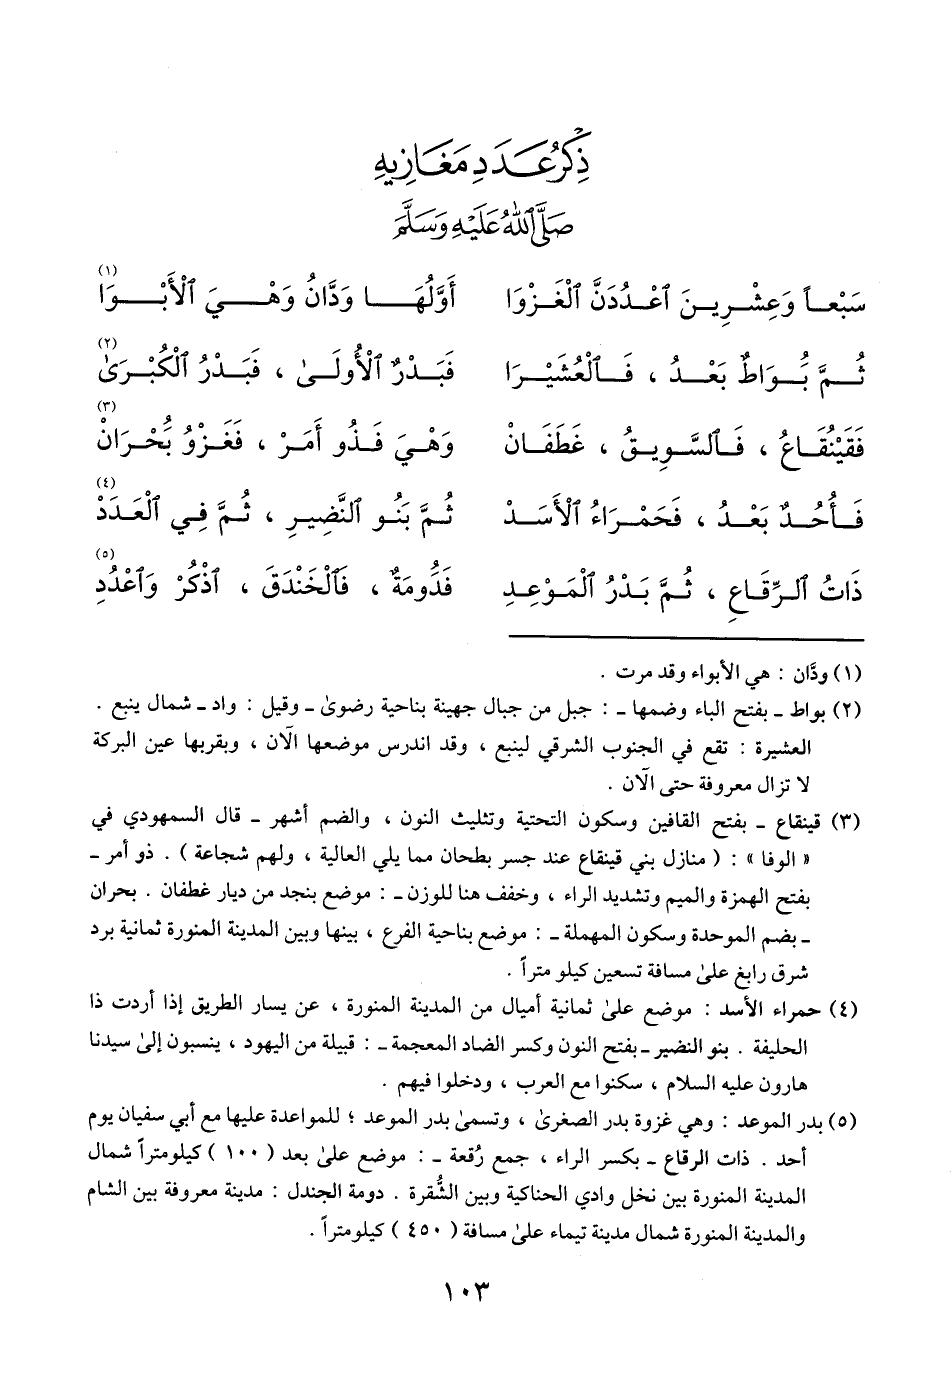 ذِكْرُ عَدَدِ مَغَازِيهِ
صَلَّى ٱللهُ عَلَيْهِ وَسَلَّمَ
سَبْعاً وَعِشْرِينَ ٱعْدُدَنَّ ٱلْغَزْوَا أَوَّلُهَا وَدَّانُ وَهْيَ ٱلْأَبْوَا (١)
ثُمَّ بُوَاطٌ بَعْدُ ، فَٱلْعُشَيْرَا فَبَدْرٌ ٱلْأُولَىٰ ، فَبَدْرُ ٱلْكُبْرَىٰ (٢)
فَقَيْنُقَاعُ ، فَٱلسَّوِيقُ ، غَطَفَانْ وَهْيَ فَذُو أَمَرْ ، فَغَزْوُ بُحْرَانْ (٣)
فَأُحُدٌ بَعْدُ ، فَحَمْرَاءُ ٱلْأَسَدْ ثُمَّ بَنُو ٱلنَّضِيرِ ، ثُمَّ فِي ٱلْعَدَدْ (٤)
ذَاتُ ٱلرِّقَاعِ ، ثُمَّ بَدْرُ ٱلْمَوْعِدِ فَدُومَةٌ ، فَٱلْخَنْدَقَ ، ٱذْكُرْ وَٱعْدُدِ (٥)
(١) ودَّان : هي الأبواء وقد مرت .
(٢) بواط ـ بفتح الباء وضمها ـ : جبل من جبال جهينة بناحية رضوىٰ ـ وقيل : واد ـ شمال ينبع .
العشيرة : تقع في الجنوب الشرقي لينبع ، وقد اندرس موضعها الآن ، وبقربها عين البركة
لا تزال معروفة حتى الآن .
(٣) قينقاع ـ بفتح القافين وسكون التحتية وتثليث النون ، والضم أشهر ـ قال السمهودي في
« الوفا » : ( منازل بني قينقاع عند جسر بطحان مما يلي العالية ، ولهم شجاعة ) . ذو أمر ـ
بفتح الهمزة والميم وتشديد الراء ، وخفف هنا للوزن ـ : موضع بنجد من ديار غطفان . بحران
ـ بضم الموحدة وسكون المهملة ـ : موضع بناحية الفرع ، بينها وبين المدينة المنورة ثمانية برد
شرق رابغ علىٰ مسافة تسعين كيلو متراً .
(٤) حمراء الأسد : موضع علىٰ ثمانية أميال من المدينة المنورة ، عن يسار الطريق إذا أردت ذا
الحليفة . بنو النضير ـ بفتح النون وكسر الضاد المعجمة ـ : قبيلة من اليهود ، ينسبون إلىٰ سيدنا
هارون عليه السلام ، سكنوا مع العرب ، ودخلوا فيهم .
(٥) بدر الموعد : وهي غزوة بدر الصغرىٰ ، وتسمىٰ بدر الموعد ؛ للمواعدة عليها مع أبي سفيان يوم
أحد . ذات الرقاع ـ بكسر الراء ، جمع رُقعة ـ : موضع علىٰ بعد ( ١٠٠ ) كيلومتراً شمال
المدينة المنورة بين نخل وادي الحناكية وبين الشُّقرة . دومة الجندل : مدينة معروفة بين الشام
والمدينة المنورة شمال مدينة تيماء علىٰ مسافة ( ٤٥٠ ) كيلومتراً .
١٠٣